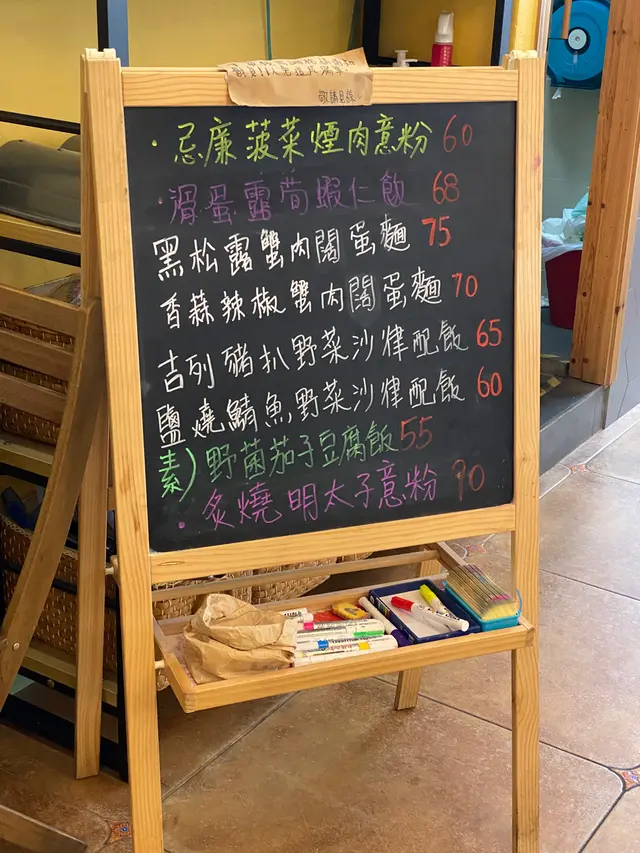 敬請見諒
・忌廉菠菜煙肉意粉 60
・滑蛋露荀蝦仁飯 68
黑松露蟹肉闊蛋麵 75
香蒜辣椒蟹肉闊蛋麵 70
吉列豬扒野菜沙律配飯 65
鹽燒鯖魚野菜沙律配飯 60
素)野菌茄子豆腐飯 55
・炙燒明太子意粉 90